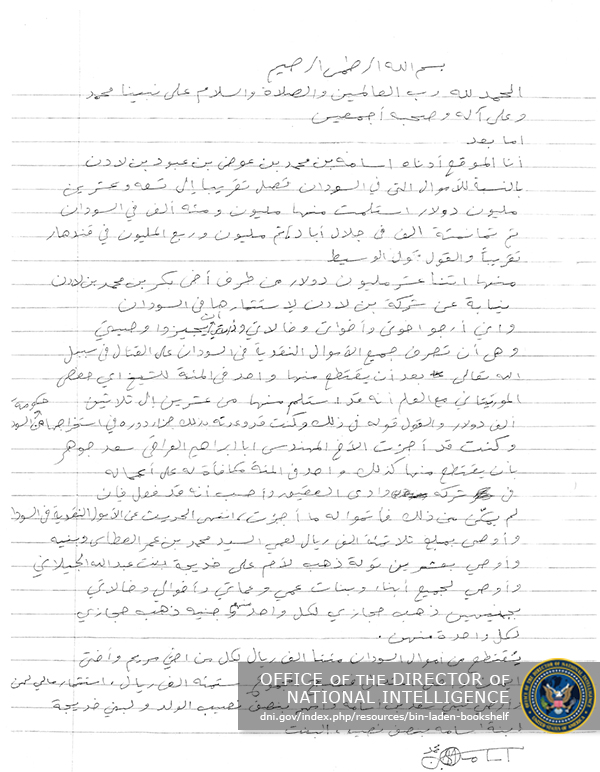 بسم الله الرحمن الرحيم
الحمد لله رب العالمين والصلاة والسلام على نبينا محمد
وعلى آله وصحبه أجمعين
اما بعد
أنا الموقع أدناه اسامه بن محمد بن عوض بن عبود بن لادن
بالنسبة للأموال التي في السودان تصل تقريبا إلى تسعه وعشرين
مليون دولار استلمت منها مليون ومئة ألف في السودان
ثم ثمانمئة الف في جلال أباد مليون وربع المليون في قندهار
تقريباً والقول قول الوسيط
منها اثنا عشر مليون دولار من طرف أخي بكر بن محمد بن لادن
نيابة عن شركة بن لادن لاستثمارها في السودان
واني أرجو اخوتي وأخواتي وخالاتي أن يجيزوا وصيتي
وهي أن تصرف جميع الأموال النقدية في السودان على القتال في سبيل
الله تعالى بعد أن يقتطع منها واحد في المئة للشيخ ابي حفص
الموريتاني مع العلم أنه قد استلم منها من عشرين إلى ثلاثين
ألف دولار والقول قوله في ذلك وكنت قد وعدته بذلك جزاء دوره في استخراجها من حكومة السودان
وكنت قد أجزت الأخ المهندس ابا ابراهيم العراقي سعد جوهر
بأن يقتطع منها كذلك واحد في المئة مكافأة له على أعماله
في شركة وادي العقيق وأحسب أنه قد فعل فإن
لم يكن من ذلك فأتموا له ما أجزت، انتهى الحديث عن الأموال النقدية في السودان
وأوصي بمبلغ ثلاثمئة الف ريال لعمي السيد محمد بن عمر العطاس وبنيه
وأوصي بعشرين تولة ذهب لأم علي خديجة بنت عبدالله الجيلاني
وأوصي لجميع أبناء وبنات عمي وعماتي وأخوالي وخالاتي
بجنيهين ذهب حجازي لكل واحد منهم وجنيه ذهب حجازي
لكل واحدة منهن .
يقتطع من أموال السودان مئتا الف ريال لكل من اختي مريم وأختي
ستمئة الف ريال
ابنة اسامه بنصف نصيب البنت
OFFICE OF THE DIRECTOR OF
NATIONAL INTELLIGENCE
dni.gov/index.php/resources/bin-laden-bookshelf